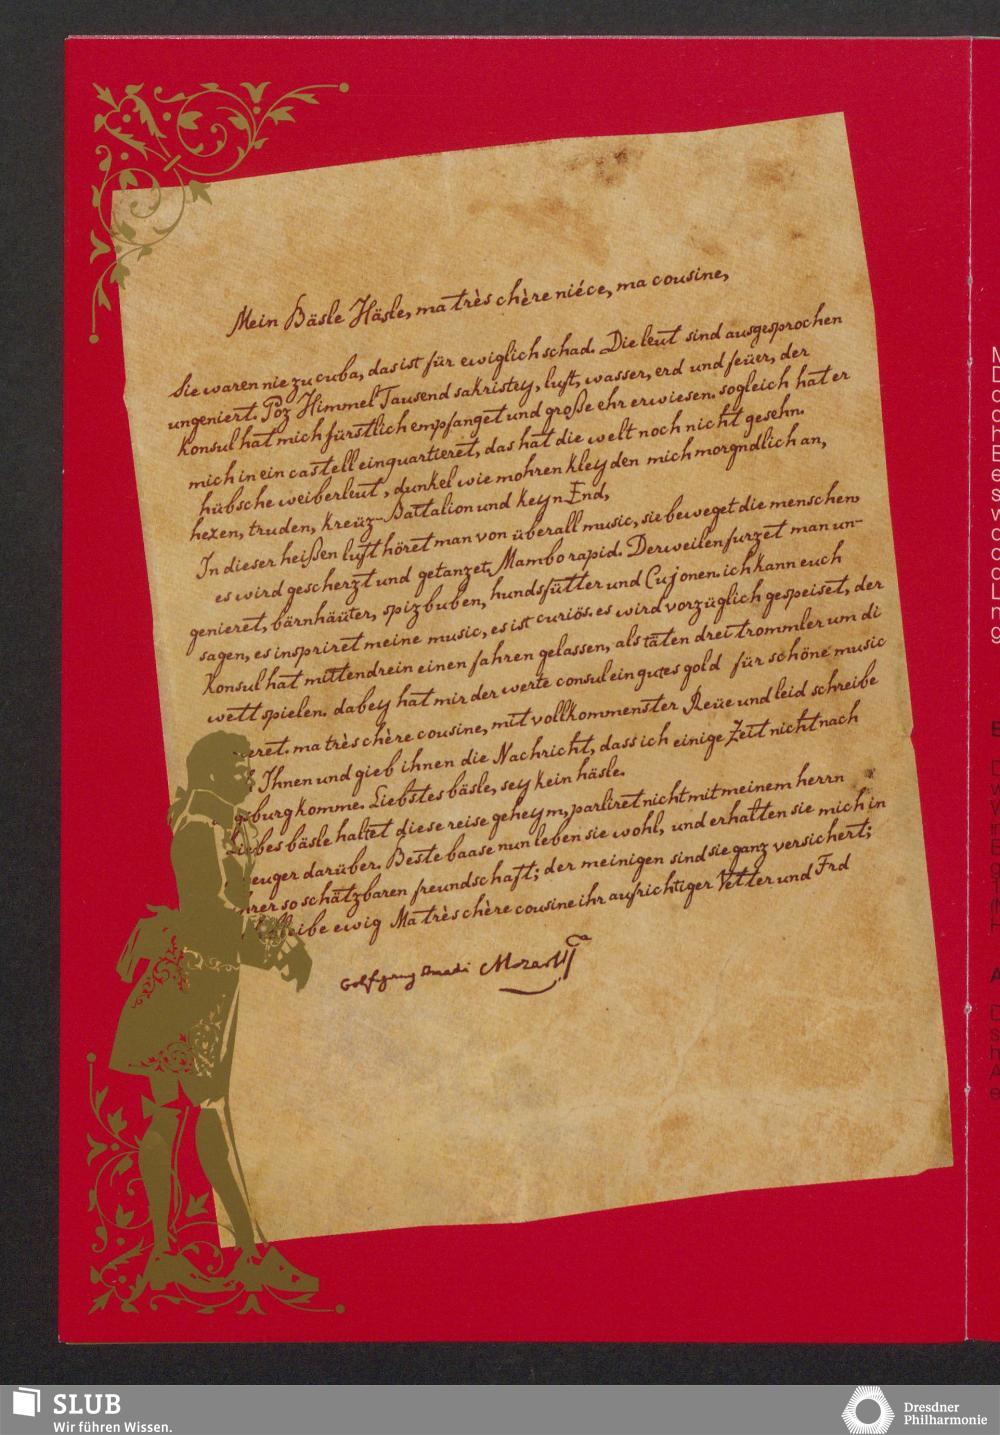 Mein Bäsle Häsle, ma très chère niéce, ma cousine,
Sie waren nie zu cuba, das ist für ewiglich schad. Die leut sind ausgesprochen
ungeniert. Poz Himmel Tausend sakristey, luft, wasser, erd und feüer, der
Konsul hat mich fürstlich empfanget und große ehr erwiesen. sogleich hat er
mich in ein castell einquartieret, das hat die welt noch nicht gesehn.
hübsche weiberleut, dunkel wie mohren kleyden mich morgndlich an,
hexen, truden, Kreüz-Battalion und keyn End,
In dieser heißen luft höret man von überall music, sie beweget die menschen
es wird gescherzt und getanzet, Mambo rapid. Derweilen furzet man un-
genieret, bärnhäuter, spizbuben, hundsfütter und Cujonen. ich kann euch
sagen, es inspriret meine music, es ist curiös. es wird vorzüglich gespeiset, der
Konsul hat mittendrein einen fahren gelassen, als täten drei trommler um di
wett spielen. dabey hat mir der werte consul ein gutes gold für schöne music
eret. ma très chère cousine, mit vollkommenster Reüe und leid schreibe
Ihnen und gieb ihnen die Nachricht, dass ich einige Zeit nicht nach
gsburg komme. Liebstes bäsle, sey kein häsle.
Liebes bäsle haltet diese reise geheym, parliret nicht mit meinem herrn
euger darüber. Beste baase nun leben sie wohl, und erhalten sie mich in
hrer so schätzbaren freundschaft; der meinigen sind sie ganz versichert;
eibe ewig Ma très chère cousine ihr aufrichtiger Vetter und Frd
Mozart
SLUB
Wir führen Wissen.
Dresdner
Philharmonie